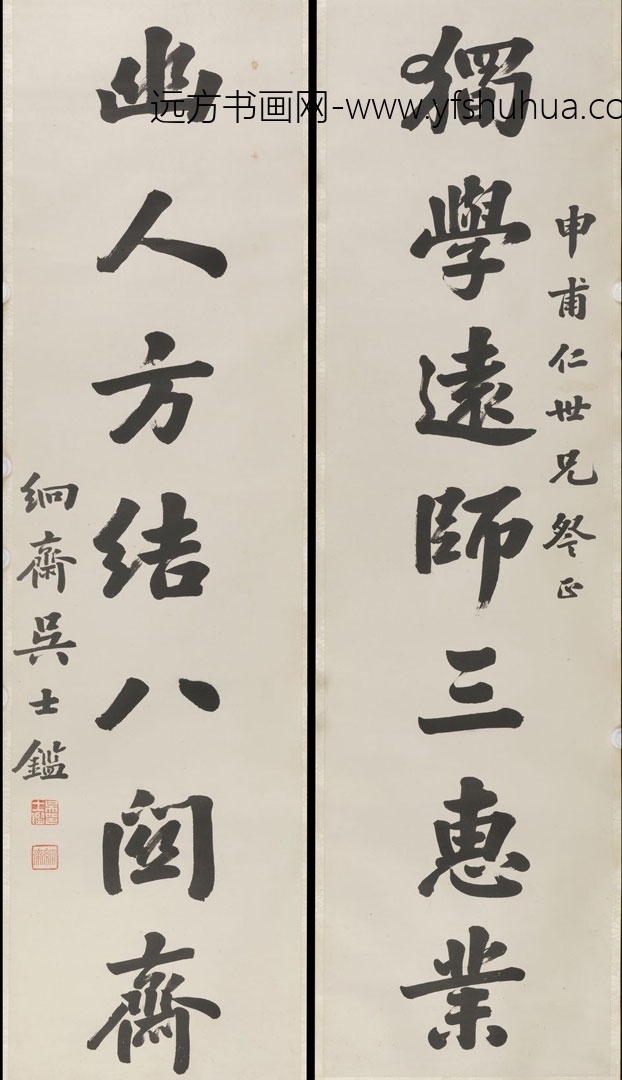 獨學遠師三惠業
申甫仁世兄詧正
幽人方結八関齋
絅齋吳士鑑
远方书画网-www.yfshuhua.co